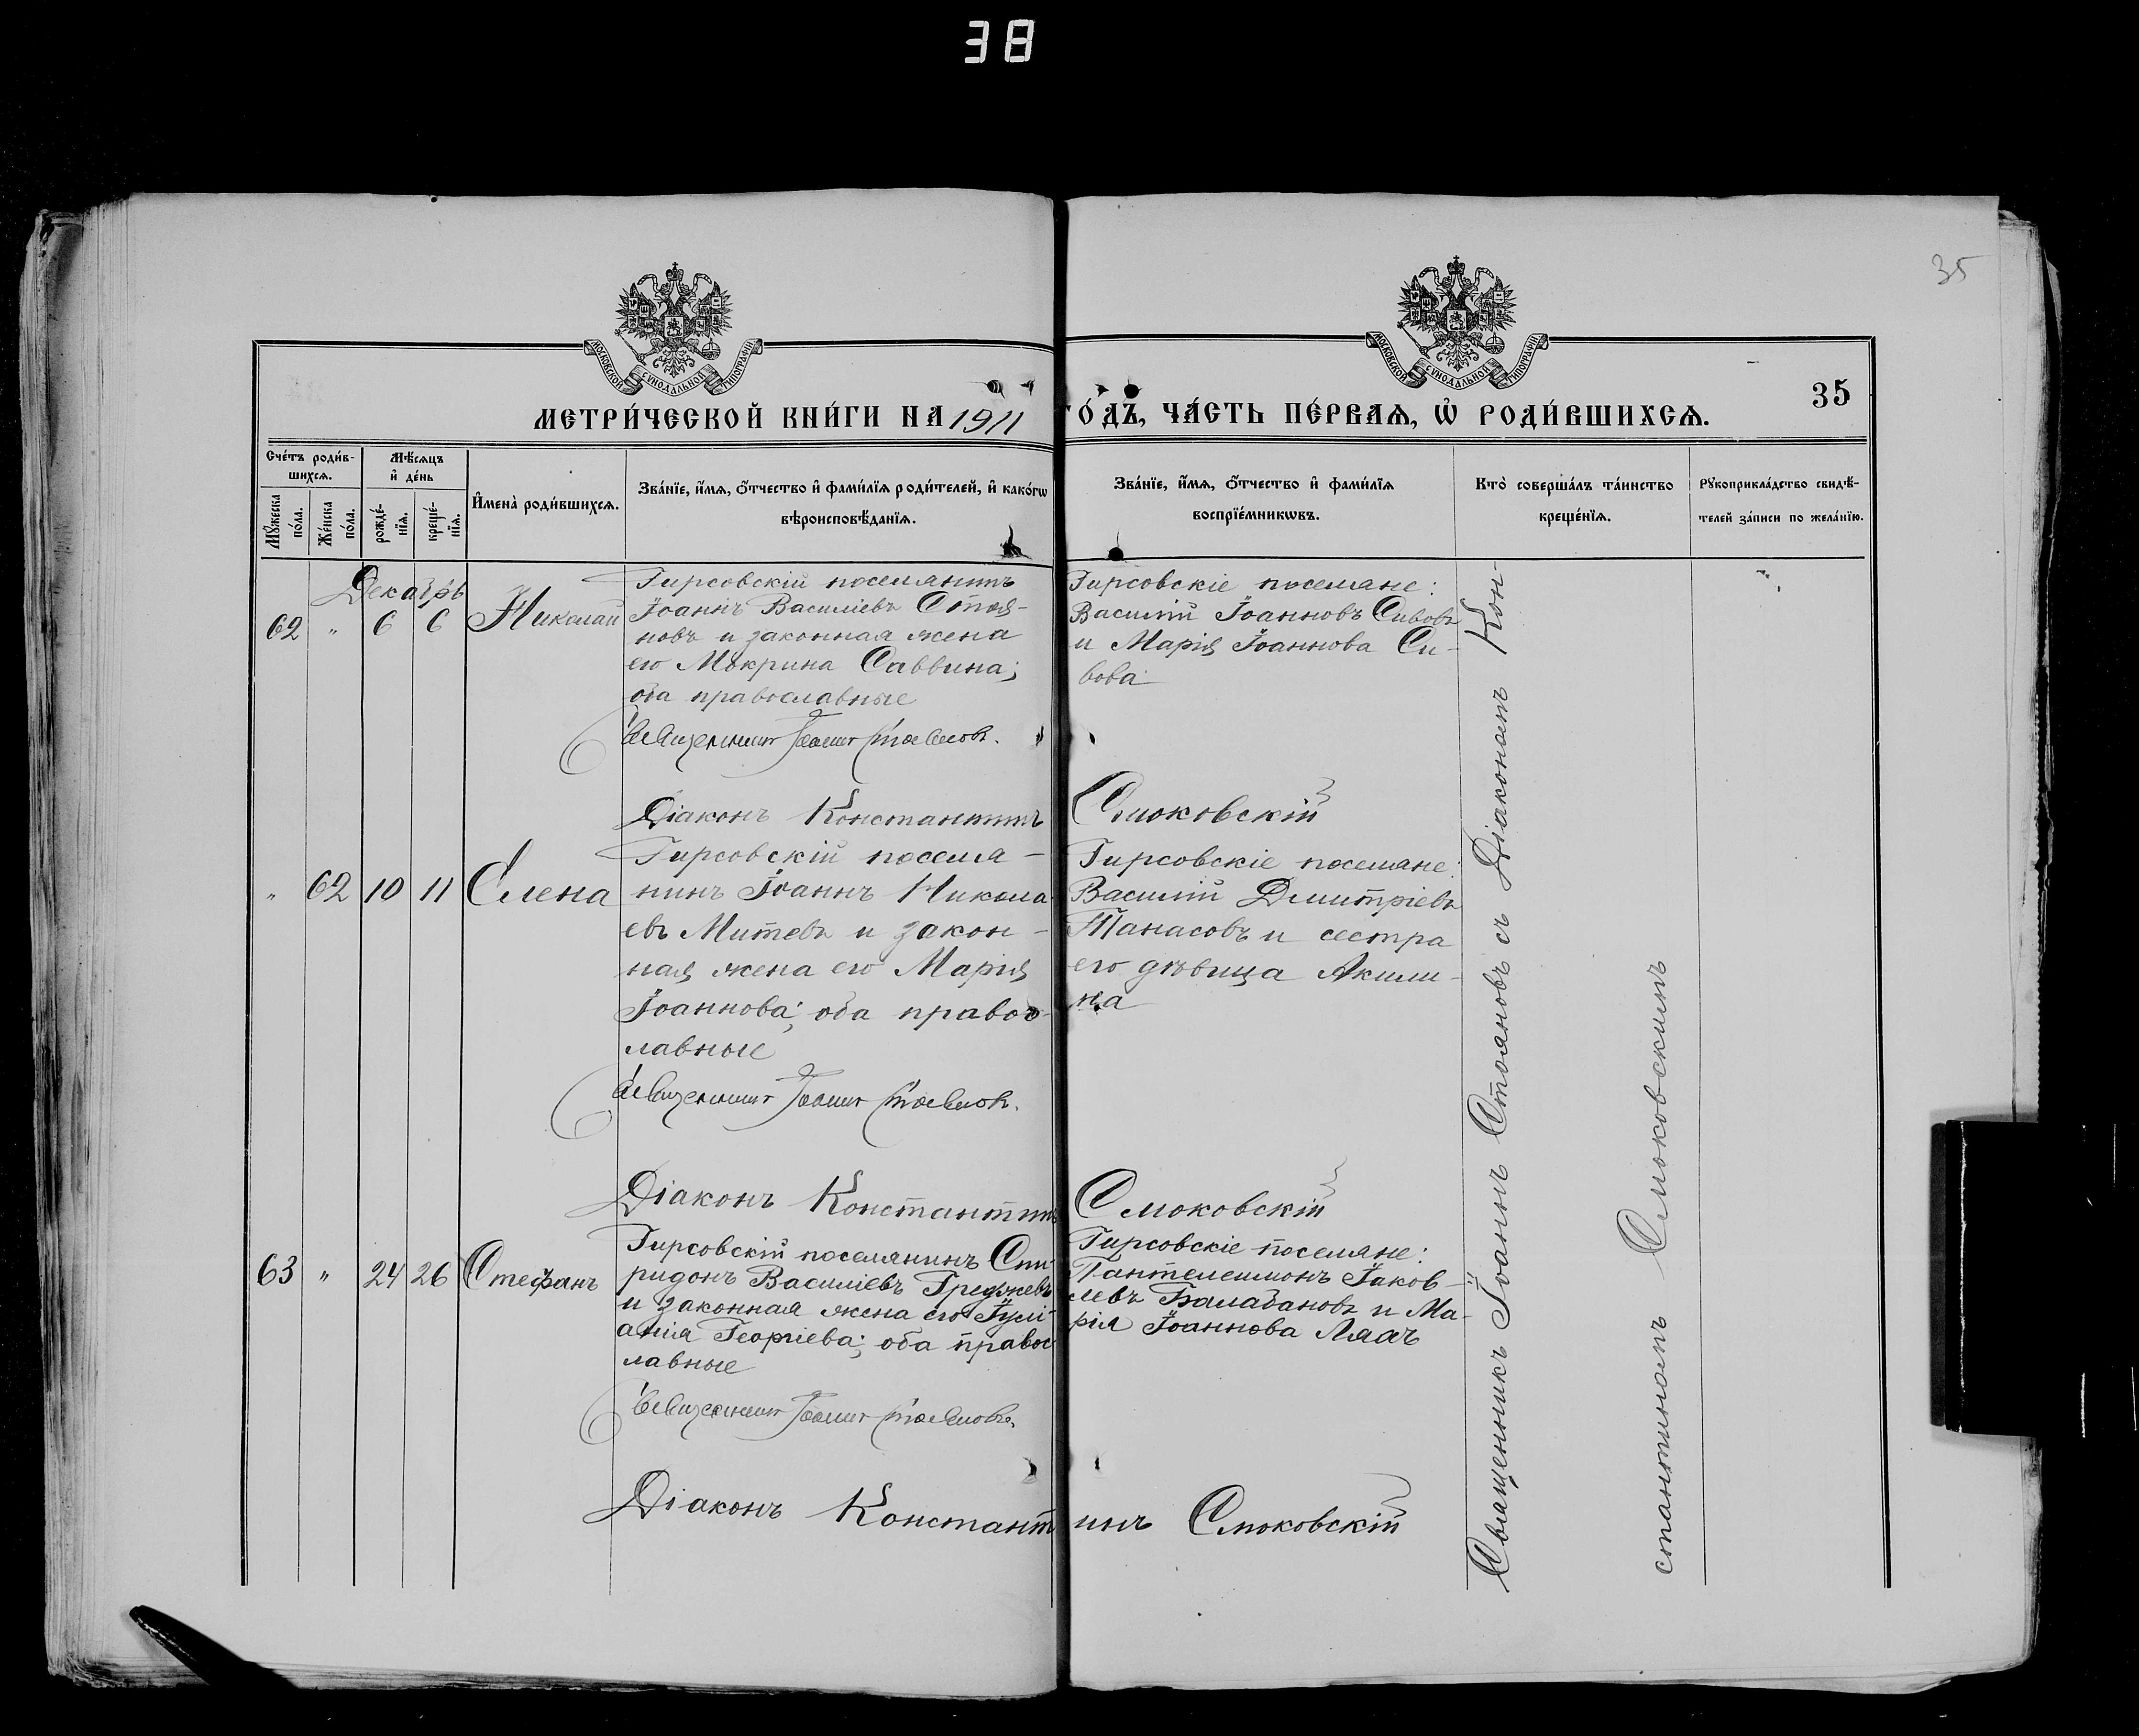 38
35
МОСКОВСКОЙ СУНОДАЛЬНОЙ ТИПОГРАФІИ
МОСКОВСКОЙ СУНОДАЛЬНОЙ ТИПОГРАФІИ
35
МЕТРИ́ЧЕСКОЙ КНИ́ГИ НА 1911 ГО́ДЪ, ЧА́СТЬ ПЕ́РВАѦ, Ѡ҆ РОДИ́ВШИХСѦ.
Сче́тъ роди́в-
шихсѧ.
Мꙋ́жеска
по́ла.
Же́нска
по́ла.
Мѣ́сѧцъ
и҆ де́нь
рожде́-
нїѧ.
креще́-
нїѧ.
И҆мена̀ роди́вшихсѧ.
Зва́нїе, и҆́мѧ, ѻ҆́тчество и҆ фами́лїѧ роди́телей, и҆ како́гѡ
вѣроисповѣ́данїѧ.
Зва́нїе, и҆́мѧ, ѻ҆́тчество и҆ фами́лїѧ
воспрїе́мникѡвъ.
Кто̀ соверша́лъ та́инство
креще́нїѧ.
Рꙋкоприкла́дство свидѣ́-
телей за́писи по жела́нїю.
Декабрь
62 " 6 6 Николай
Гирсовскій поселянинъ
Іоаннъ Василіевъ Стоя-
новъ и законная жена
его Мокрина Саввина;
оба православные
Гирсовскіе поселяне:
Василій Іоанновъ Сивовъ
и Марія Іоаннова Си-
вова
Священникъ Іоаннъ Стояновъ.
Діаконъ Константинъ Смоковскій
" 62 10 11 Елена
Гирсовскій поселя-
нинъ Іоаннъ Никола
евъ Митевъ и закон-
ная жена его Марія
Іоаннова; оба правос-
лавные
Гирсовскіе поселяне:
Василій Димитріевъ
Танасовъ и сестра
его дѣвица Акили-
на
Священникъ Іоаннъ Стояновъ.
Діаконъ Константинъ Смоковскій
63 " 24 26 Стефанъ
Гирсовскій поселянинъ Спи-
ридонъ Василіевъ
и законная жена его Іулі-
анія Георгіева; оба правос
лавные
Гирсовскіе поселяне:
Пантелеимонъ Іаков-
левъ Балабановъ и Ма-
рія Іоаннова
Священникъ Іоаннъ Стояновъ.
Діаконъ Константинъ Смоковскій
Священникъ Іоаннъ Стояновъ съ Діакономъ Кон-
стантиномъ Смоковскимъ